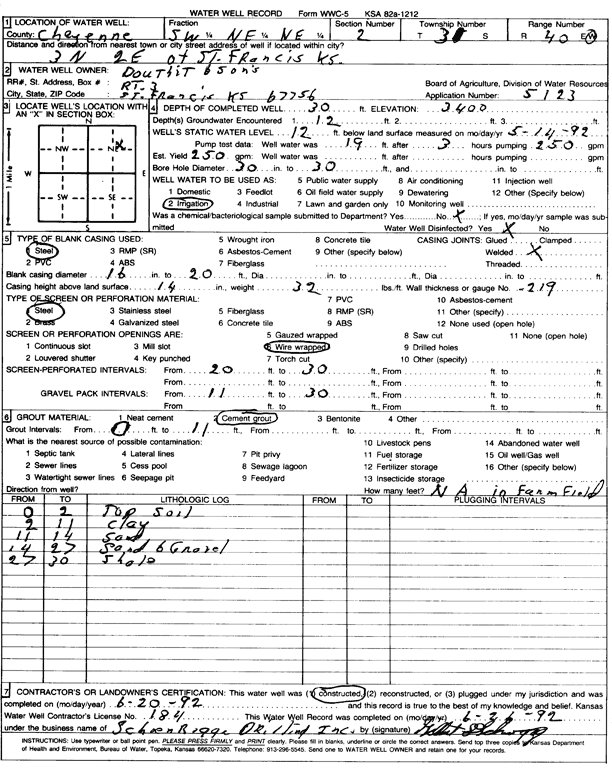 WATER WELL RECORD Form WWC-5 KSA 82a-1212
1 LOCATION OF WATER WELL: Fraction Section Number Township Number Range Number
County: Cheyenne SW ¼ NE ¼ NE ¼ 2 T 3 S R 40 E/W
Distance and direction from nearest town or city street address of well if located within city?
3 N 2E of St. Francis KS.
2 WATER WELL OWNER: Douthit & Son's
RR#, St. Address, Box # : RT. 3 Board of Agriculture, Division of Water Resources
City, State, ZIP Code : St. Francis KS 67756 Application Number: 5123
3 LOCATE WELL'S LOCATION WITH AN "X" IN SECTION BOX:
N
NW NE X
W E
SW SE
S
1 Mile
4 DEPTH OF COMPLETED WELL 30 ft. ELEVATION: 3400
Depth(s) Groundwater Encountered 1. 12 ft. 2. ft. 3. ft.
WELL'S STATIC WATER LEVEL 12 ft. below land surface measured on mo/day/yr 5-14-92
Pump test data: Well water was 19 ft. after 3 hours pumping 250 gpm
Est. Yield 250 gpm: Well water was ft. after hours pumping gpm
Bore Hole Diameter 30 in. to 30 ft., and in. to ft.
WELL WATER TO BE USED AS: 5 Public water supply 8 Air conditioning 11 Injection well
1 Domestic 3 Feedlot 6 Oil field water supply 9 Dewatering 12 Other (Specify below)
2 Irrigation 4 Industrial 7 Lawn and garden only 10 Monitoring well
Was a chemical/bacteriological sample submitted to Department? Yes No X ; If yes, mo/day/yr sample was submitted Water Well Disinfected? Yes X No
5 TYPE OF BLANK CASING USED: 5 Wrought iron 8 Concrete tile CASING JOINTS: Glued Clamped
1 Steel 3 RMP (SR) 6 Asbestos-Cement 9 Other (specify below) Welded X
2 PVC 4 ABS 7 Fiberglass Threaded
Blank casing diameter 16 in. to 20 ft., Dia in. to ft., Dia in. to ft.
Casing height above land surface 14 in., weight 32 lbs./ft. Wall thickness or gauge No. .219
TYPE OF SCREEN OR PERFORATION MATERIAL: 7 PVC 10 Asbestos-cement
1 Steel 3 Stainless steel 5 Fiberglass 8 RMP (SR) 11 Other (specify)
2 Brass 4 Galvanized steel 6 Concrete tile 9 ABS 12 None used (open hole)
SCREEN OR PERFORATION OPENINGS ARE: 5 Gauzed wrapped 8 Saw cut 11 None (open hole)
1 Continuous slot 3 Mill slot 6 Wire wrapped 9 Drilled holes
2 Louvered shutter 4 Key punched 7 Torch cut 10 Other (specify)
SCREEN-PERFORATED INTERVALS: From 20 ft. to 30 ft., From ft. to ft.
From ft. to ft., From ft. to ft.
GRAVEL PACK INTERVALS: From 11 ft. to 30 ft., From ft. to ft.
From ft. to ft., From ft. to ft.
6 GROUT MATERIAL: 1 Neat cement 2 Cement grout 3 Bentonite 4 Other
Grout Intervals: From 0 ft. to 11 ft., From ft. to ft., From ft. to ft.
What is the nearest source of possible contamination: 10 Livestock pens 14 Abandoned water well
1 Septic tank 4 Lateral lines 7 Pit privy 11 Fuel storage 15 Oil well/Gas well
2 Sewer lines 5 Cess pool 8 Sewage lagoon 12 Fertilizer storage 16 Other (specify below)
3 Watertight sewer lines 6 Seepage pit 9 Feedyard 13 Insecticide storage
Direction from well? How many feet? NA in Farm Field
FROM TO LITHOLOGIC LOG FROM TO PLUGGING INTERVALS
0 2 Top Soil
2 11 Clay
11 14 Sand
14 27 Sand & Gravel
27 30 Shale
7 CONTRACTOR'S OR LANDOWNER'S CERTIFICATION: This water well was (1) constructed, (2) reconstructed, or (3) plugged under my jurisdiction and was
completed on (mo/day/year) 6-20-92 and this record is true to the best of my knowledge and belief. Kansas
Water Well Contractor's License No. 184 This Water Well Record was completed on (mo/day/yr) 6-26-92
under the business name of Drilling Inc. by (signature)
INSTRUCTIONS: Use typewriter or ball point pen. PLEASE PRESS FIRMLY and PRINT clearly. Please fill in blanks, underline or circle the correct answers. Send top three copies to Kansas Department
of Health and Environment, Bureau of Water, Topeka, Kansas 66620-7320. Telephone: 913-296-5545. Send one to WATER WELL OWNER and retain one for your records.